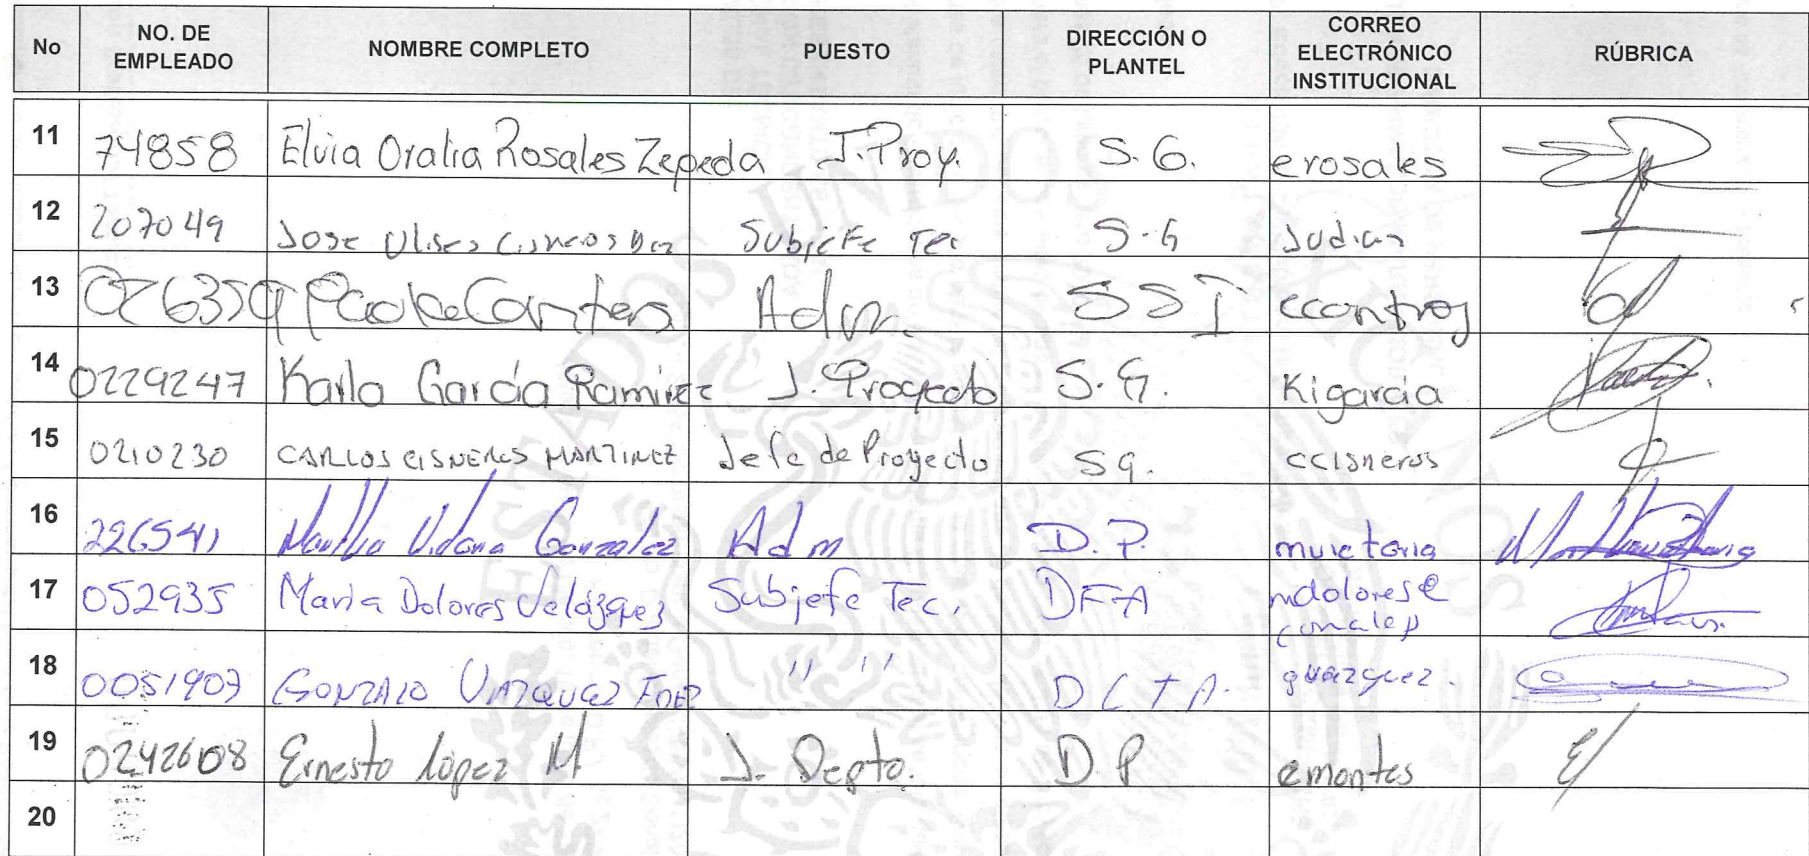 No NO. DE EMPLEADO NOMBRE COMPLETO PUESTO DIRECCIÓN O PLANTEL CORREO ELECTRÓNICO INSTITUCIONAL RÚBRICA
11 74858 Elvia Oralia Rosales Zepeda J. Proy. S. G. erosales
12 207049 Jose Ulises Cisneros Subjefe Tec S.G
13 Adm. SSI
14 0229247 Karla García Ramirez J. Proyecto S.G. Kigarcia
15 0210230 CARLOS CISNEROS MARTINEZ Jefe de Proyecto SG. ccisneros
16 226541 Gonzalez Adm D.P.
17 052935 María Dolores Velázquez Subjefe Tec. DFA mdolores@
conalep
18 0051907 GONZALO VAZQUEZ FDEZ " " D C T A. gvazquez.
19 0242608 Ernesto López M J. Depto. D P emontes
20
ESTADOS UNIDOS